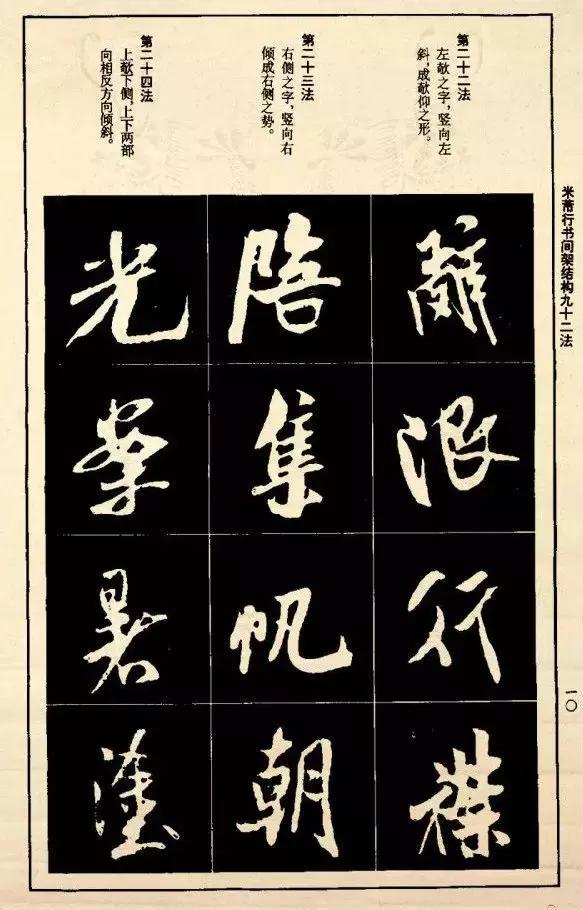 米芾行书间架结构九十二法
一〇
第二十二法
左欹之字,竖向左
斜,成欹仰之形。
第二十三法
右侧之字,竖向右
倾成右侧之势。
第二十四法
上欹下侧,上下两部
向相反方向倾斜。
行
陪集帆朝
光暑塗